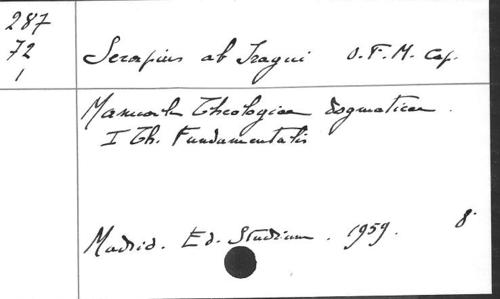 287
72
1
Serapius ab Iragui O.F.M. Cap.
Manuale Theologiae dogmaticae.
I Th. Fundamentalis
Madrid. Ed. Studium. 1959. 8º